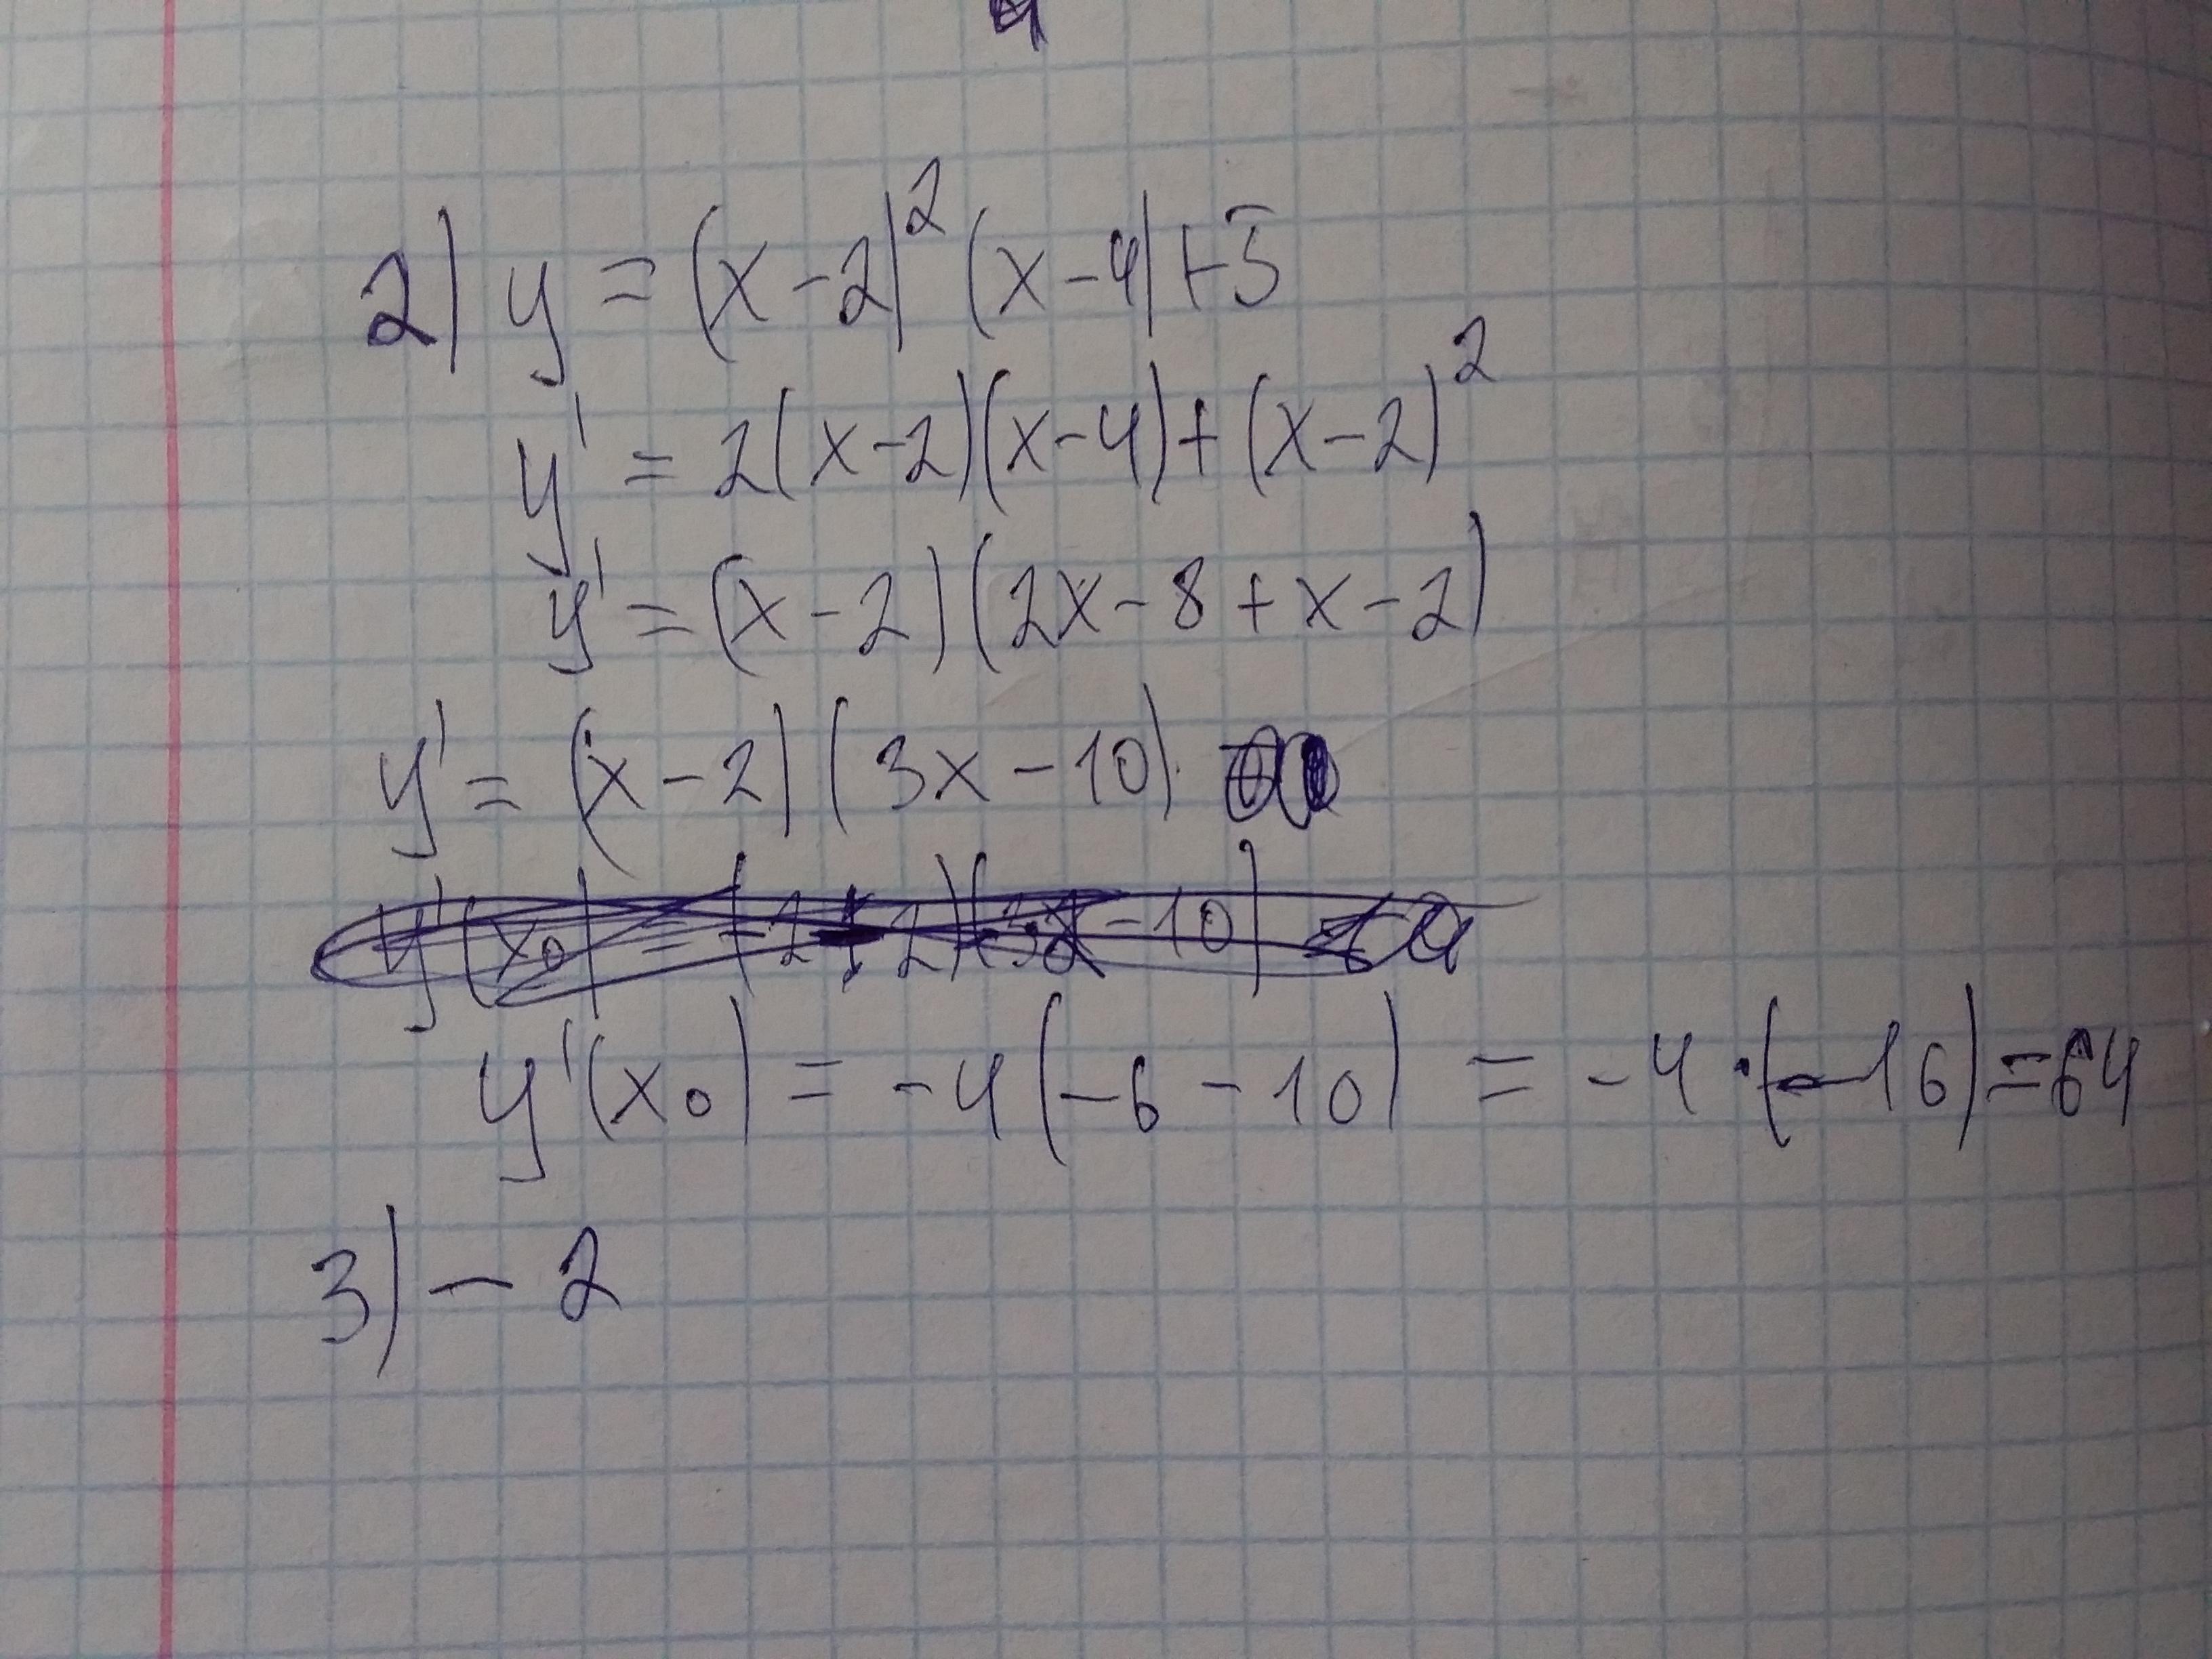 2) y = (x-2)² (x-4) + 5
y' = 2(x-2)(x-4) + (x-2)²
y' = (x-2)(2x-8+x-2)
y' = (x-2)(3x-10)
y'(x₀) = -4(-6-10) = -4·(-16) = 64
3) - 2